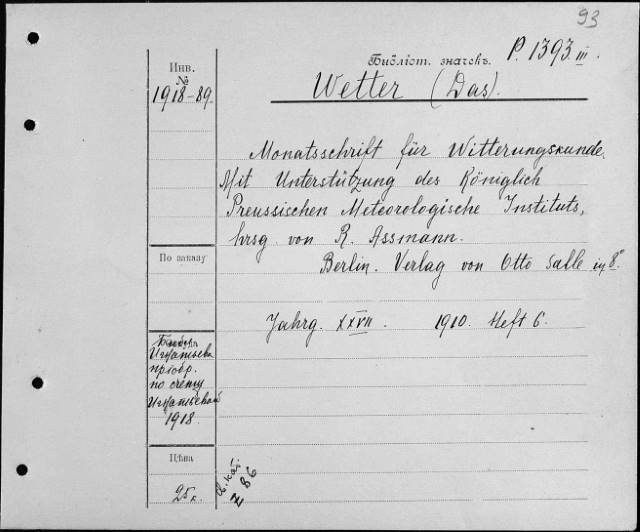 93
Библіот. значекъ. P. 1393.III.
Инв.
№
1918-89.
Wetter (Das).
Monatsschrift für Witterungskunde.
Mit Unterstützung des Königlich
Preussischen Meteorologische Instituts,
hrsg. von R. Assmann.
Berlin. Verlag von Otto Salle in 8°
По заказу
Jahrg. XXVII 1910. Heft 6.
Игнатьева
пріобр.
по счету
Игнатьевой
1918.
Цѣна
25 к.
№ 86